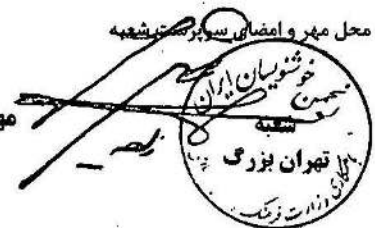 محل مهر و امضای سرپرست شعبه
انجمن خوشنویسان ایران
شعبه
تهران بزرگ
با همکاری وزارت فرهنگ